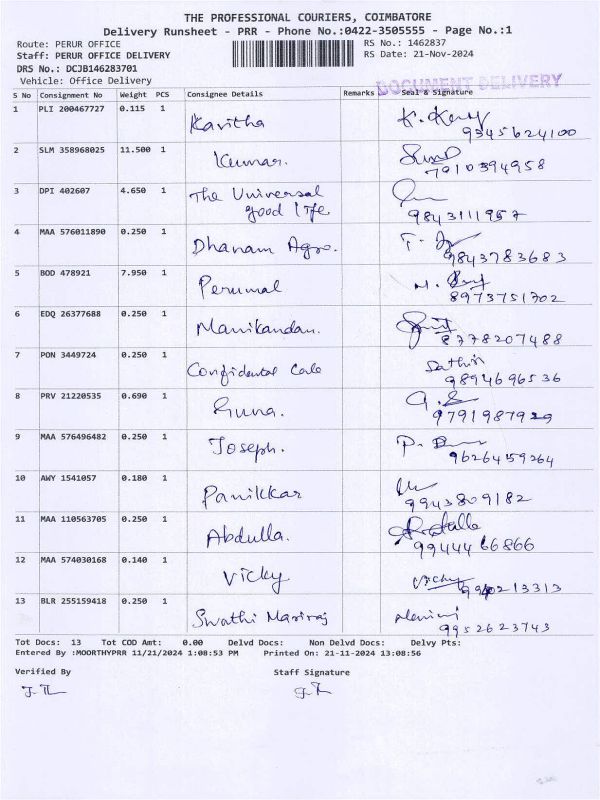 THE PROFESSIONAL COURIERS, COIMBATORE
Delivery Runsheet - PRR - Phone No.:0422-3505555 - Page No.:1
Route: PERUR OFFICE
RS No.: 1462837
Staff: PERUR OFFICE DELIVERY
RS Date: 21-Nov-2024
DRS No.: DCJB146283701
Vehicle: Office Delivery
DOCUMENT DELIVERY
S No Consignment No Weight PCS Consignee Details Remarks Seal & Signature
1 PLI 200467727 0.115 1 Kavitha
9345624100
2 SLM 358968025 11.500 1 Kumar.
7910394958
3 DPI 402607 4.650 1 The Universal
good life
9843111957
4 MAA 576011890 0.250 1 Dhanam Agro.
9843783683
5 BOD 478921 7.950 1 Perumal
8973751702
6 EDQ 26377688 0.250 1 Manikandan.
8778207488
7 PON 3449724 0.250 1 Confidental Cale Sathis
9894696536
8 PRV 21220535 0.690 1 Guna.
9791987929
9 MAA 576496482 0.250 1 Joseph.
9626459264
10 AWY 1541057 0.180 1 Panikkar
9943809182
11 MAA 110563705 0.250 1 Abdulla.
9944466866
12 MAA 574030168 0.140 1 Vicky Vicky
9940213313
13 BLR 255159418 0.250 1 Swathi Mariraj
9952623743
Tot Docs: 13 Tot COD Amt: 0.00 Delvd Docs: Non Delvd Docs: Delvy Pts:
Entered By :MOORTHYPRR 11/21/2024 1:08:53 PM Printed On: 21-11-2024 13:08:56
Verified By Staff Signature